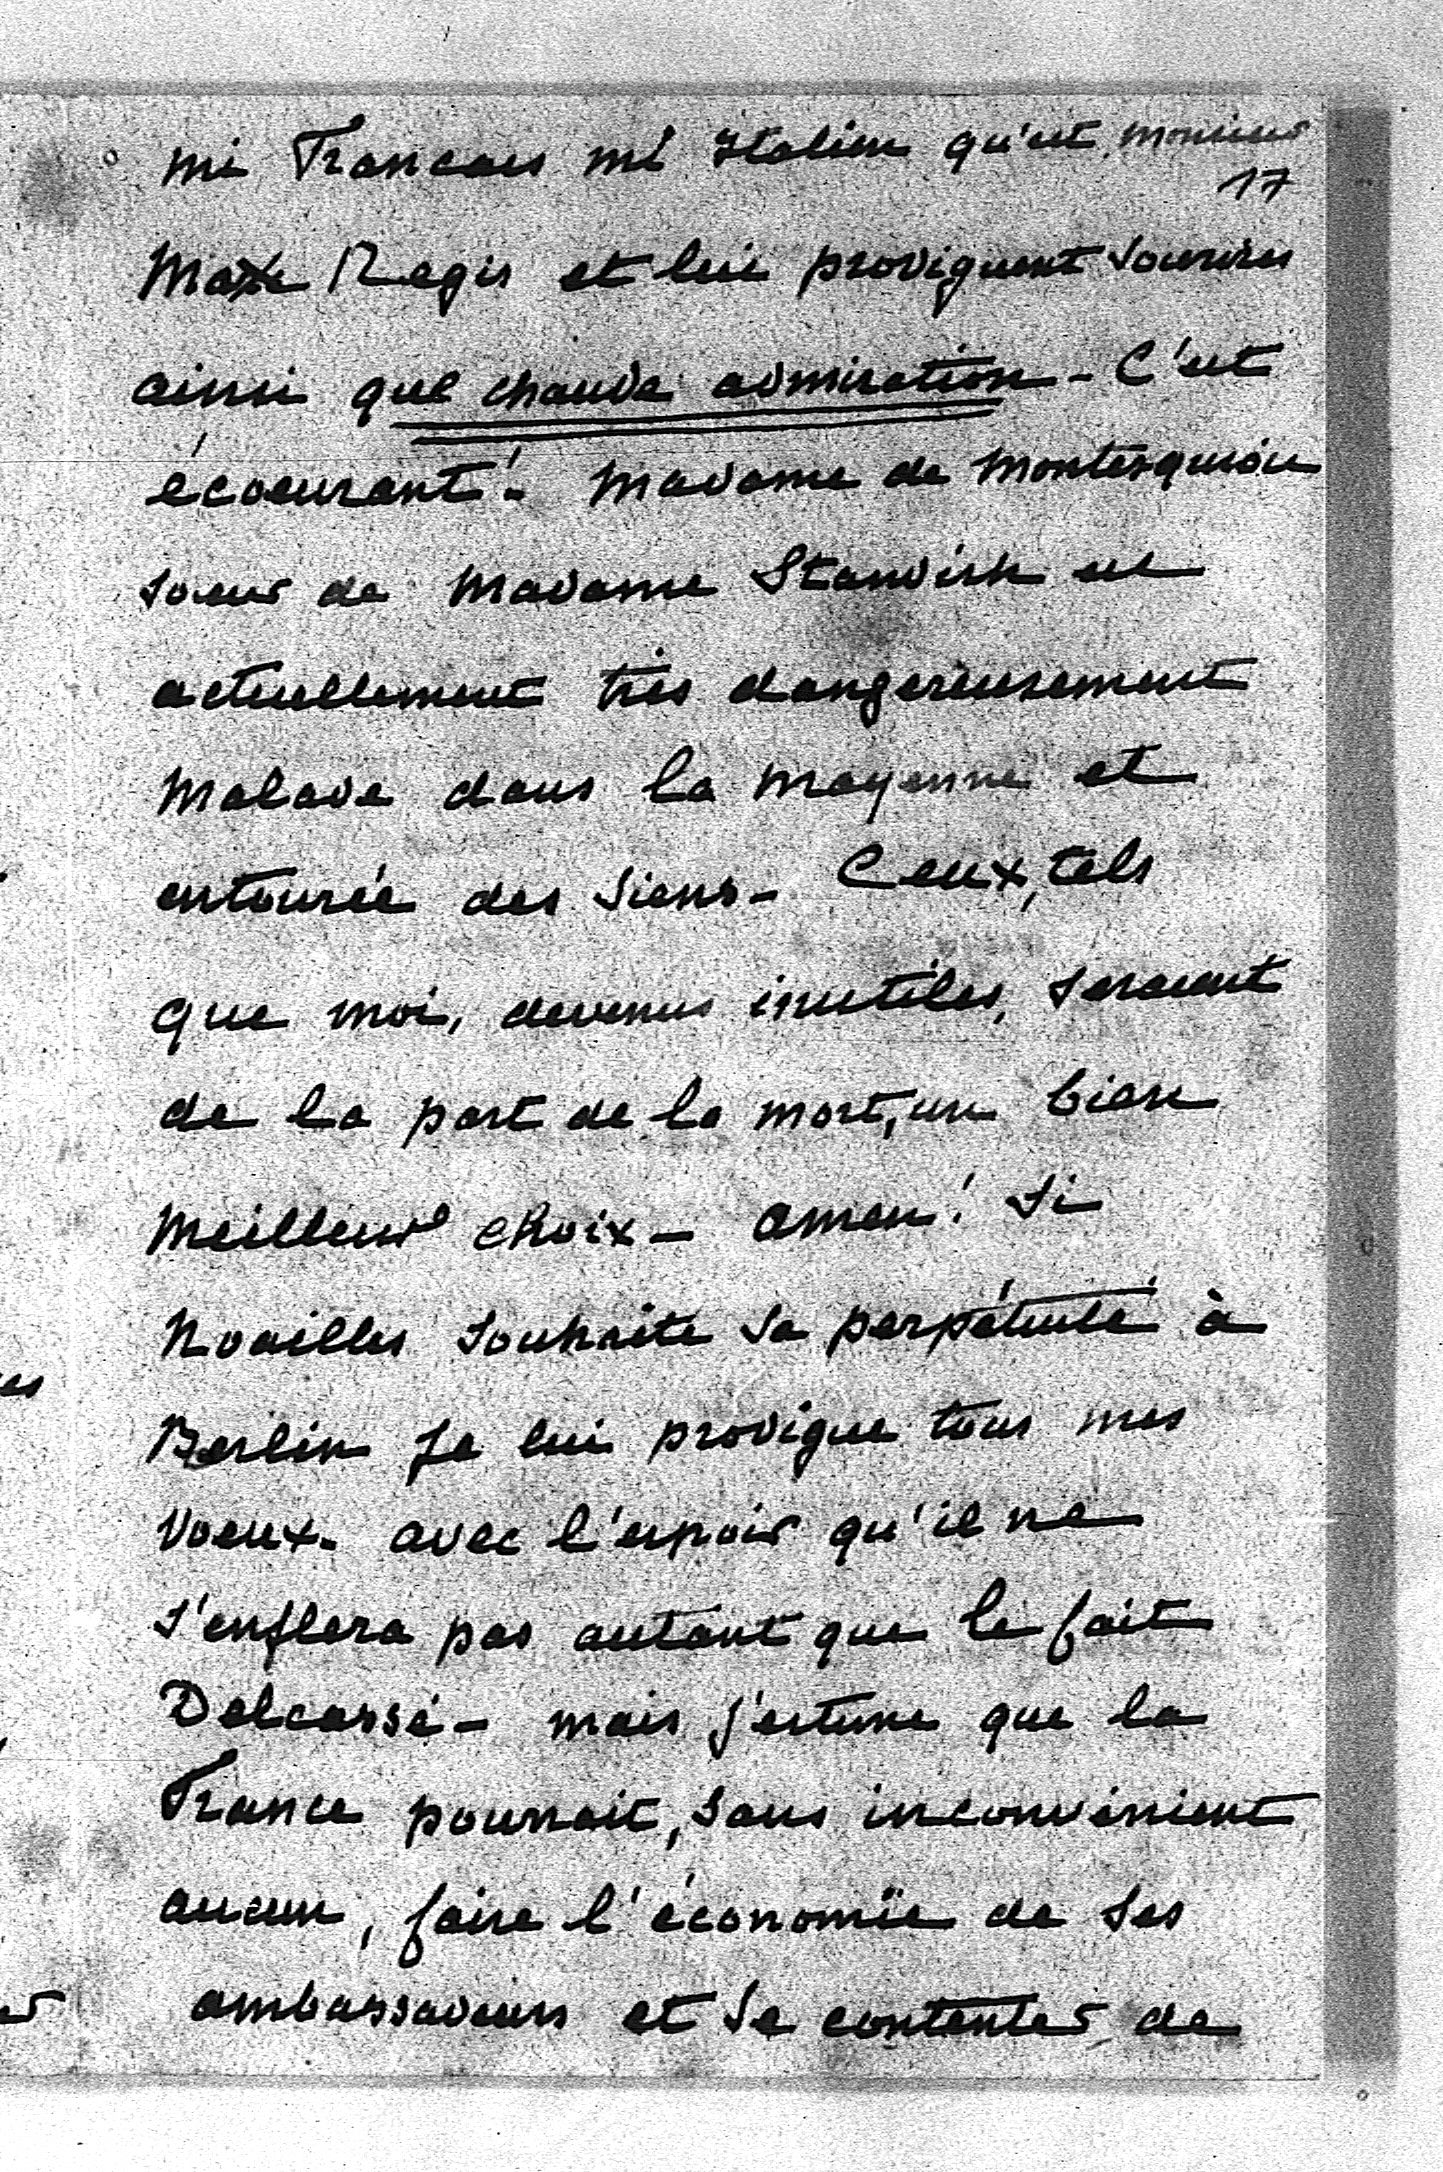 mi Francais mi Italien qu'est monsieur
17
Max Regis et lui prodiguent sourires
ainsi que chaude admiration - C'est
écoeurant ! Madame de Montesquiou
soeur de Madame Standish est
actuellement très dangereusement
malade dans la Mayenne et
entourée des siens - Ceux, tels
que moi, devenus inutiles, seraient
de la part de la mort, un bien
meilleur choix - amen ! Si
Noailles souhaite sa perpétuité à
Berlin je lui prodigue tous mes
voeux. avec l'espoir qu'il ne
s'enflera pas autant que le fait
Delcassé - mais j'estime que la
France pourrait, sans inconvénient
aucun, faire l'économie de ses
ambassadeurs et se contenter de